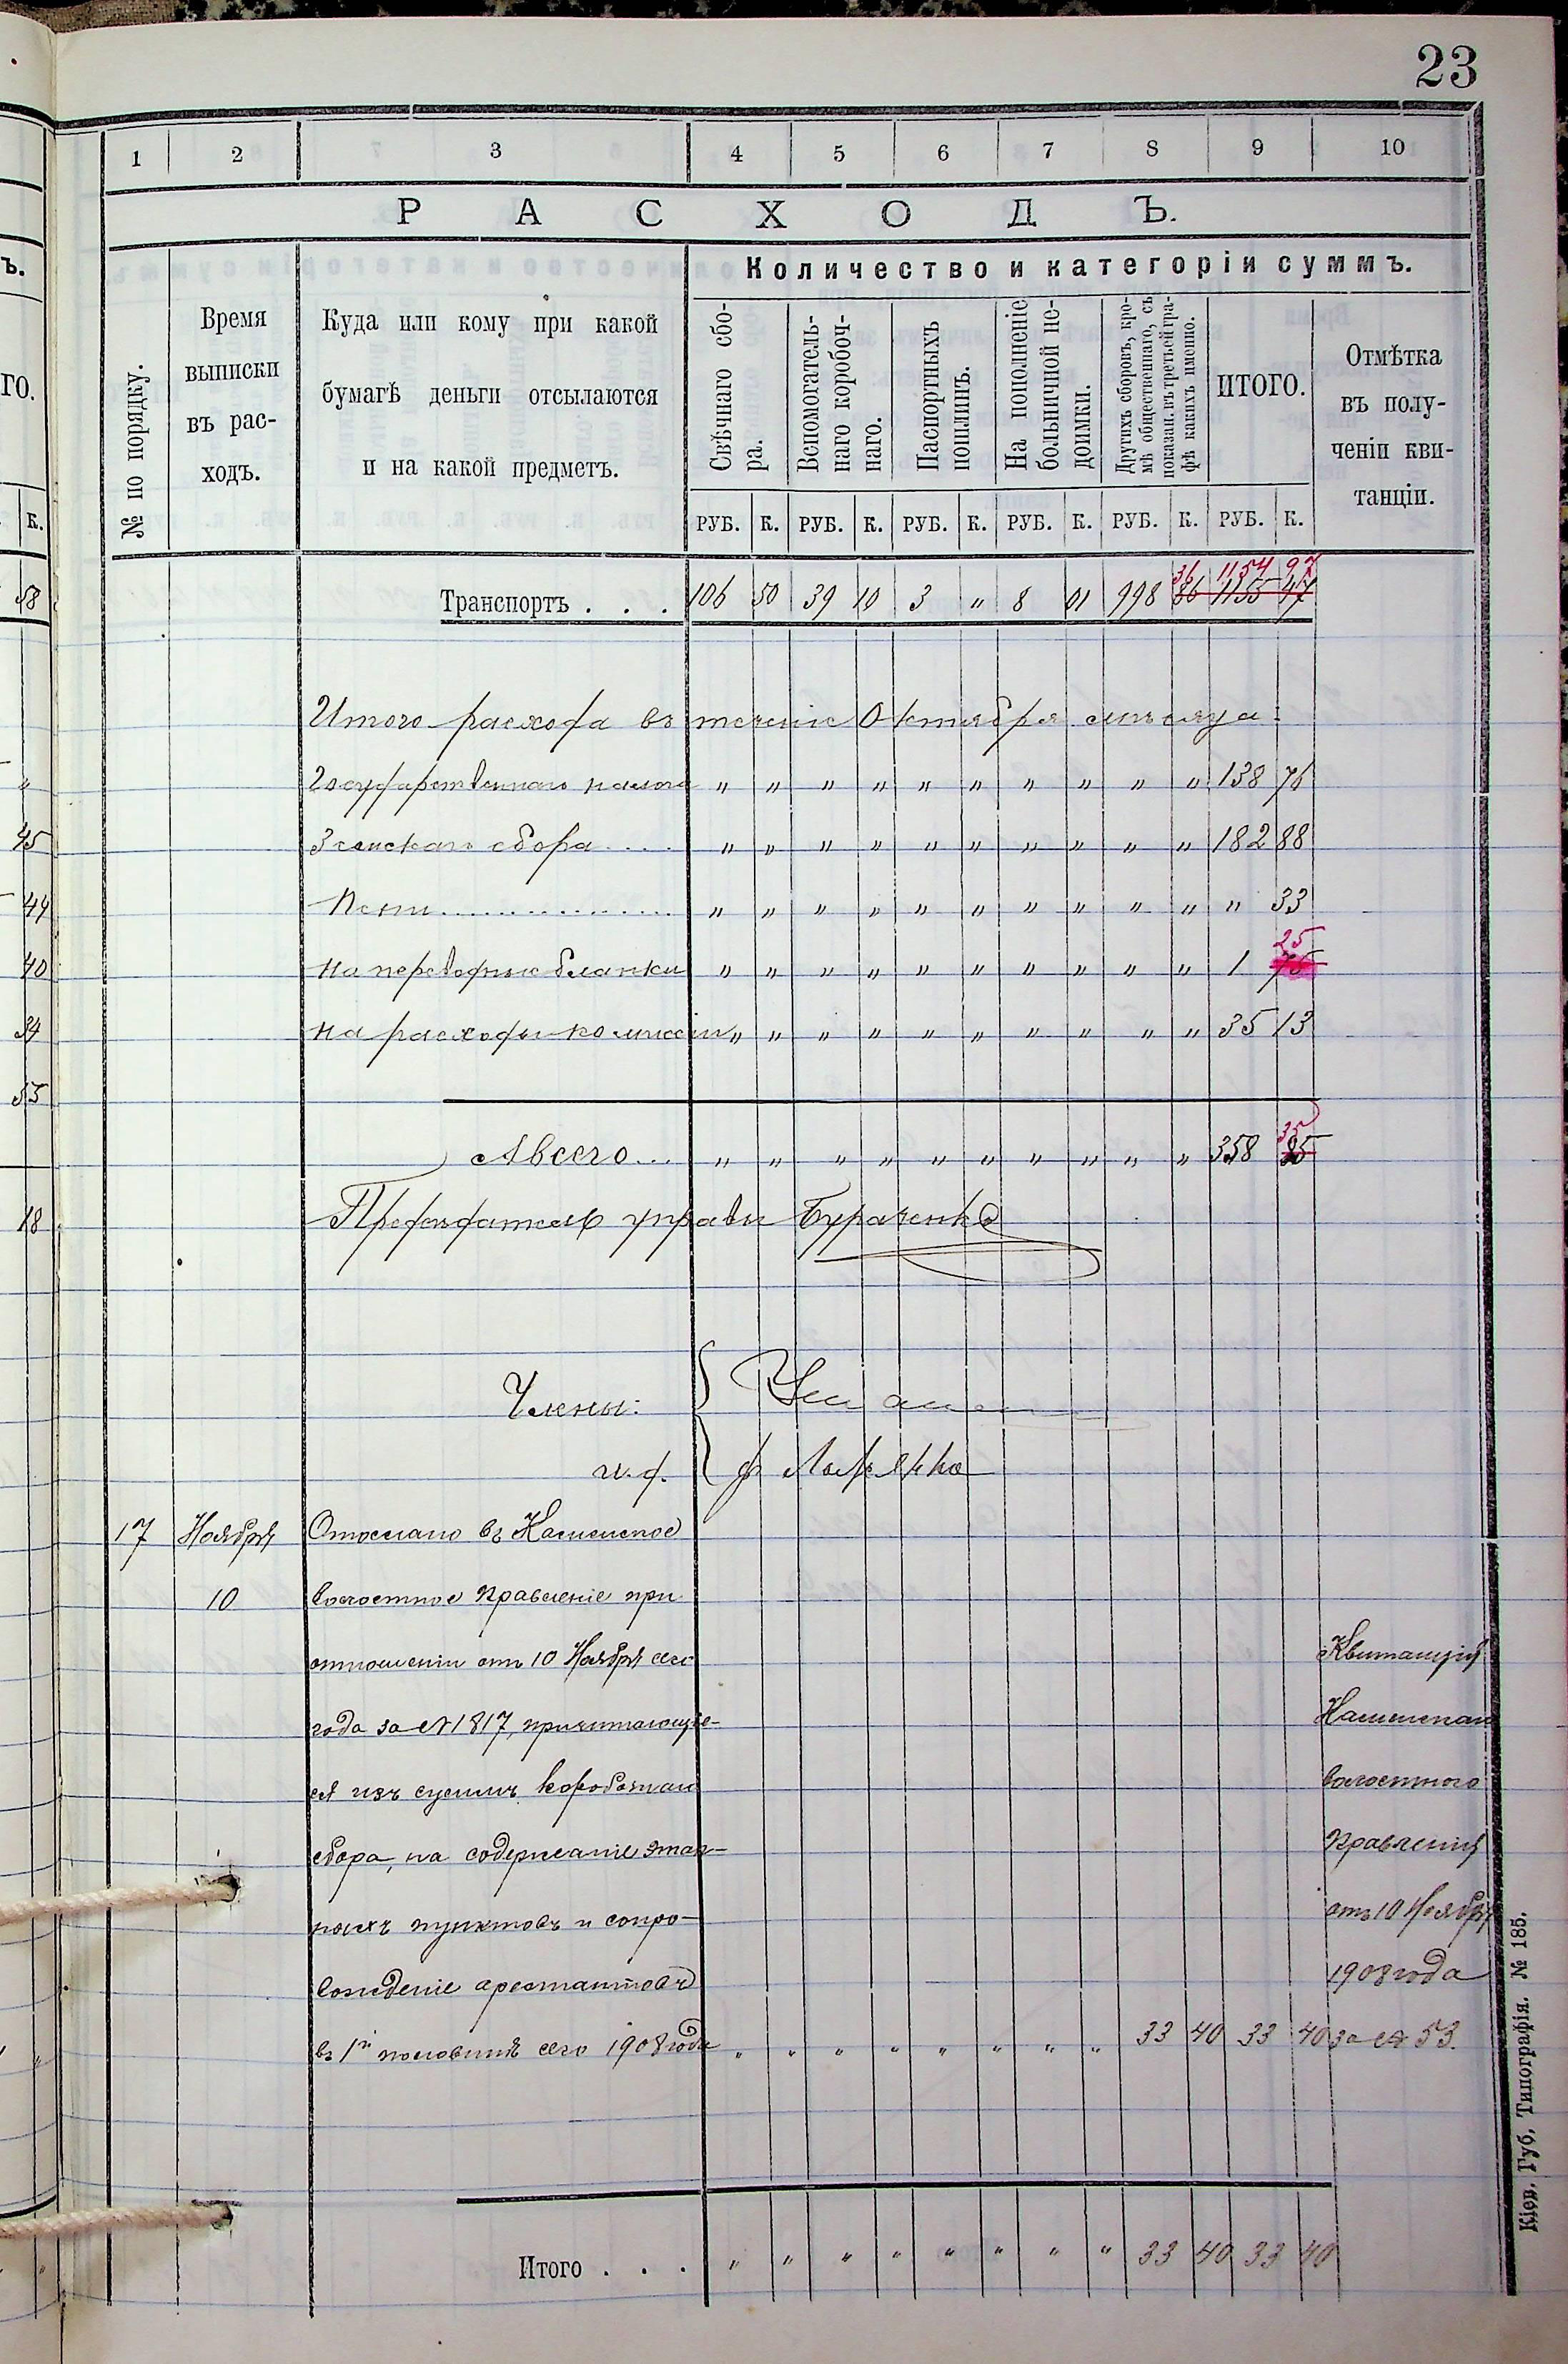 23
1 2 3 4 5 6 7 8 9 10
РАСХОДЪ.
№ по порядку.
Время
выписки
въ рас-
ходъ.
Куда или кому при какой
бумагѣ деньги отсылаются
и на какой предметъ.
Количество и категоріи суммъ.
Свѣчнаго сбо-
ра.
Вспомогатель-
наго коробоч-
наго.
Паспортныхъ
пошлинъ.
На пополненіе
больничной не-
доимки.
Другихъ сборовъ, кро-
мѣ общественнаго, съ
показан. въ третьей гра-
фѣ какихъ именно.
ИТОГО.
Отмѣтка
въ полу-
ченіи кви-
танціи.
РУБ. К. РУБ. К. РУБ. К. РУБ. К. РУБ. К. РУБ. К.
36 1154 97
Транспортъ . . . 106 50 39 10 3 " 8 01 998 86 1155 47
Итого расхода въ теченіе Октября мѣсяца:
Государственнаго налога " " " " " " " " " " 138 76
Земскаго сбора .... " " " " " " " " " " 182 88
Пени ................ " " " " " " " " " " " 33
25
на переводные бланки " " " " " " " " " " 1 75
на расходы комиссіи " " " " " " " " " " 35 13
35
А всего... " " " " " " " " " " 358 85
Предсѣдатель управы Бураченко
Члены:
и.д.
17 Ноября Отослано въ
10 волостное Правленіе при
отношеніи отъ 10 Ноября сего
года за № 1817, причитающіе-
ся изъ суммъ коробочнаго
сбора, на содержаніе этап-
ныхъ пунктовъ и сопро-
вожденіе арестантовъ
въ 1й половинѣ сего 1908 года " " " " " " " " 33 40 33 40
Квитанція
волостного
Правленія
отъ 10 Ноября
1908 года
за № 53.
Итого . . . " " " " " " " " 33 40 33 40
Кіев. Губ. Типографія. № 185.
ъ.
ГО.
К.
58
"
45
44
40
34
53
18